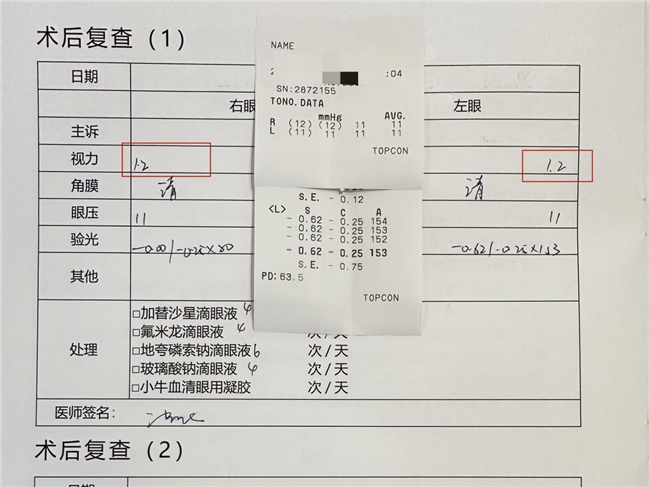 术后复查（1）
日期
右眼
左眼
主诉
视力 1.2 1.2
角膜 清 清
眼压 11 11
验光 -0.00/-0.25×80 -0.62/-0.25×153
其他
处理
□加替沙星滴眼液 4 次/天
□氟米龙滴眼液 4 次/天
□地夸磷索钠滴眼液 6 次/天
□玻璃酸钠滴眼液 4 次/天
□小牛血清眼用凝胶 次/天
医师签名：
术后复查（2）
NAME
:04
SN:2872155
TONO.DATA
mmHg AVG.
R (12) (12) 11 11
L (11) 11 11 11
TOPCON
S.E. - 0.12
<L> S C A
- 0.62 - 0.25 154
- 0.62 - 0.25 153
- 0.62 - 0.25 152
- 0.62 - 0.25 153
S.E. - 0.75
PD: 63.5
TOPCON